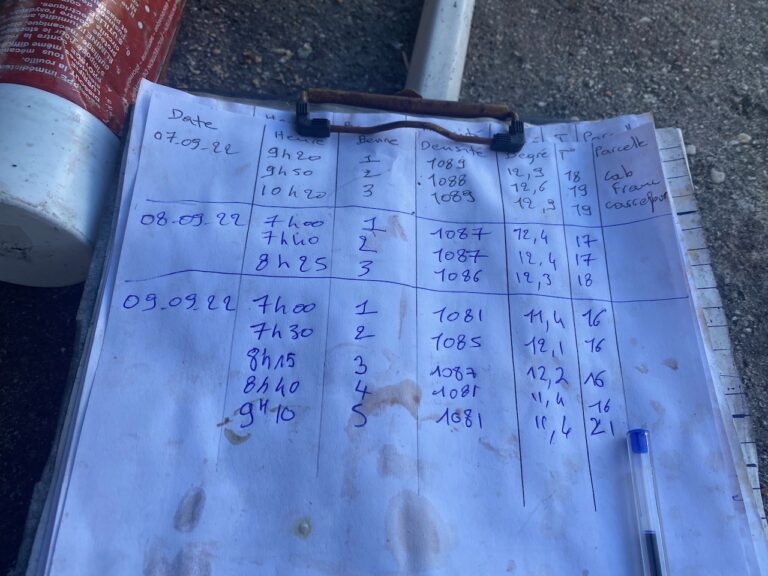 Date Heure Benne Densité Degré T° Parcelle
07.09.22 9h20 1 1089 12,9 18 Cab
9h50 2 1088 12,6 19 Franc
10h20 3 1089 12,9 19 Carrefour
08.09.22 7h00 1 1087 12,4 17
7h40 2 1087 12,4 17
8h25 3 1086 12,3 18
09.09.22 7h00 1 1081 11,4 16
7h30 2 1085 12,1 16
8h15 3 1087 12,2 16
8h40 4 1081 11,4 16
9H10 5 1081 11,4 21